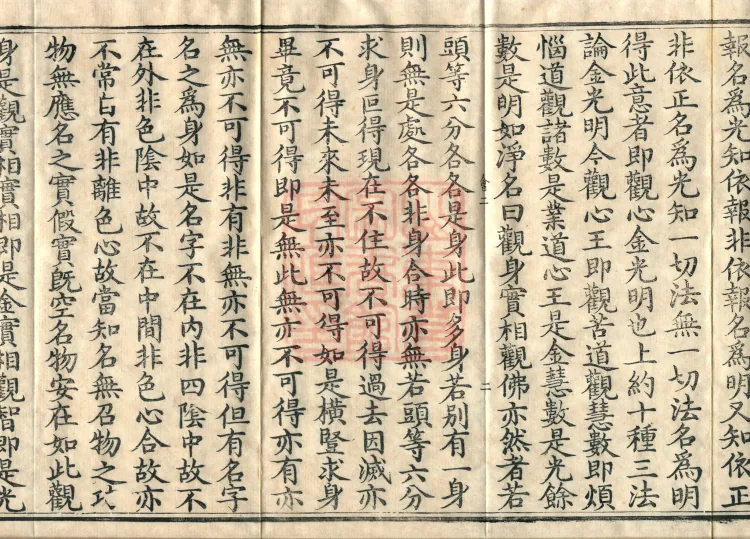 報名爲光知依報非依報名爲明又知依正
非依正名爲光知一切法無一切法名爲明
得此意者即觀心金光明也上約十種三法
論金光明今觀心王即觀苦道觀慧數即煩
惱道觀諸數是業道心王是金慧數是光餘
數是明如淨名曰觀身實相觀佛亦然者若
二
頭等六分各各是身此即多身若別有一身
則無是處各各非身合時亦無若頭等六分
求身叵得現在不住故不可得過去因滅亦
不可得未來未至亦不可得如是橫豎求身
畢竟不可得即是無此無亦不可得亦有亦
無亦不可得非有非無亦不可得但有名字
名之爲身如是名字不在內非四陰中故不
在外非色陰中故不在中間非色心合故亦
不常自有非離色心故當知名無召物之功
物無應名之實假實旣空名物安在如此觀
身是觀實相實相即是金實相觀智即是光